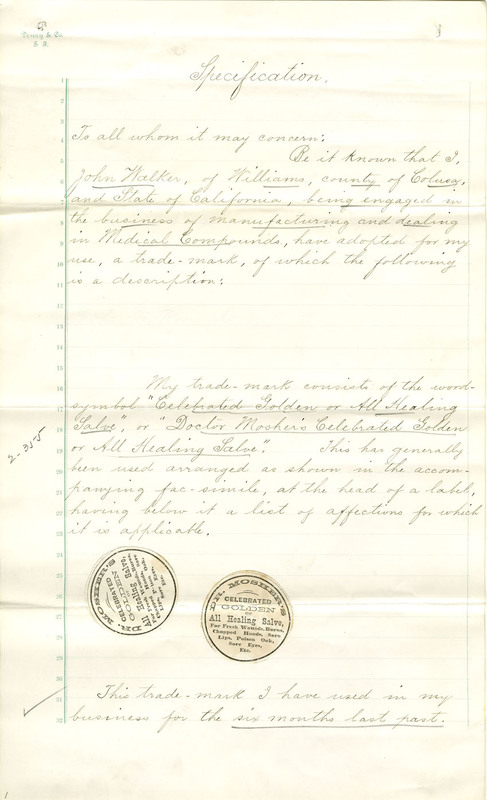 Dewey & Co.
S. F.
Specification.
To all whom it may concern:
Be it known that I,
John Walker, of Williams, county of Colusa,
and State of California, being engaged in
the business of manufacturing and dealing
in Medical Compounds, have adopted for my
use, a trade-mark, of which the following
is a description:
My trade-mark consists of the word-
symbol "Celebrated Golden or All Healing
Salve", or "Doctor Mosher's Celebrated Golden
or All Healing Salve". This has generally
been used arranged as shown in the accom-
panying fac-simile, at the head of a label,
having below it a list of affections for which
it is applicable.
2-355
DR. MOSHER'S
CELEBRATED
GOLDEN
OR
All Healing Salve,
For Fresh Wounds, Burns,
Chapped Hands, Sore
Lips, Poison Oak,
Sore Eyes,
Etc.
DR. MOSHER'S
CELEBRATED
GOLDEN
OR
All Healing Salve,
For Fresh Wounds, Burns,
Chapped Hands, Sore
Lips, Poison Oak,
Sore Eyes,
Etc.
This trade-mark I have used in my
business for the six months last past.
1
2
3
4
5
6
7
8
9
10
11
12
13
14
15
16
17
18
19
20
21
22
23
24
25
26
27
28
29
30
31
32